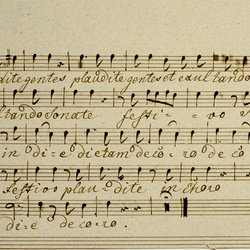 dite gentes plaudite gentes et exultando
ltando sonate festi = vo
in di = e die tam decō = ro decō
festivo plau = dite in choro
di = e decoro.